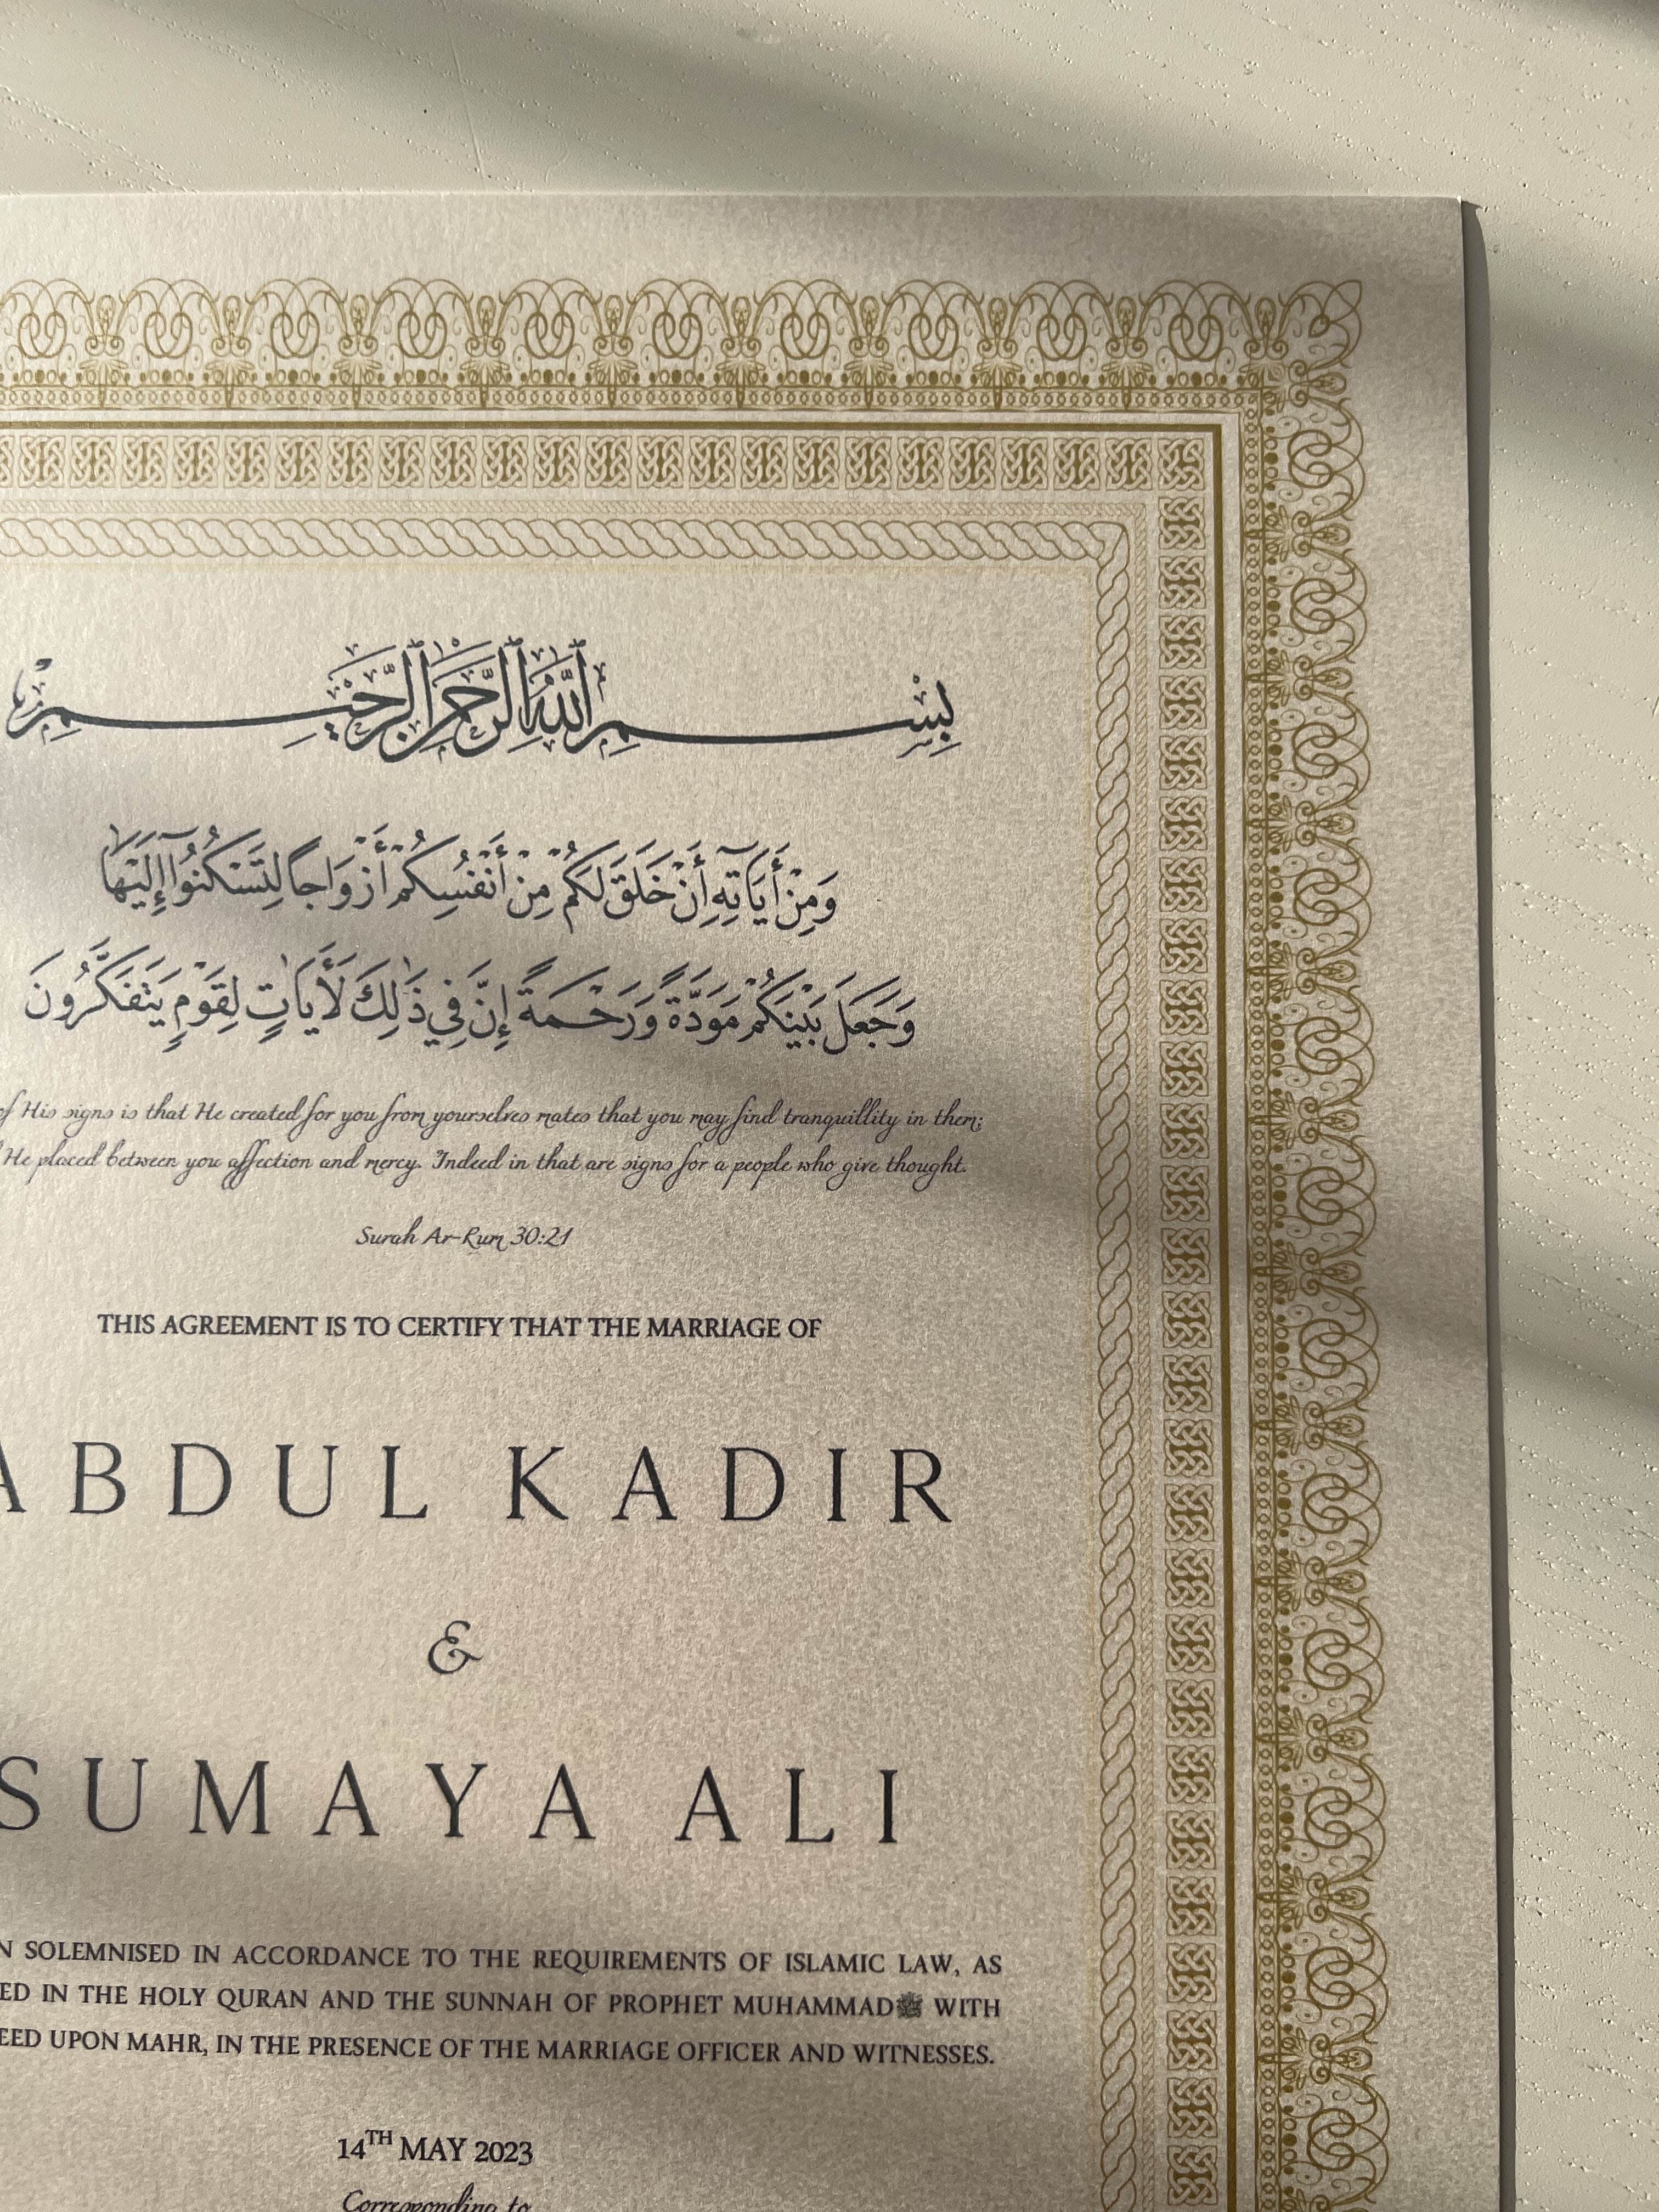 بِسْمِ اللَّهِ الرَّحْمَٰنِ الرَّحِيمِ
وَمِنْ أَيَاتِهِ أَنْ خَلَقَ لَكُم مِنْ أَنْفُسِكُمْ أَزْوَاجاً لِتَسْكُنُوا إِلَيْهَا
وَجَعَلَ بَيْنَكُمْ مَوَدَّةً وَرَحْمَةً إِنَّ فِي ذَٰلِكَ لَأَيَاتٍ لِقَوْمٍ يَتَفَكَّرُونَ
of His signs is that He created for you from yourselves mates that you may find tranquillity in them;
He placed between you affection and mercy. Indeed in that are signs for a people who give thought.
Surah Ar-Rum 30:21
THIS AGREEMENT IS TO CERTIFY THAT THE MARRIAGE OF
ABDUL KADIR
&
SUMAYA ALI
N SOLEMNISED IN ACCORDANCE TO THE REQUIREMENTS OF ISLAMIC LAW, AS
ED IN THE HOLY QURAN AND THE SUNNAH OF PROPHET MUHAMMADﷺ WITH
EED UPON MAHR, IN THE PRESENCE OF THE MARRIAGE OFFICER AND WITNESSES.
14TH MAY 2023
Corresponding to